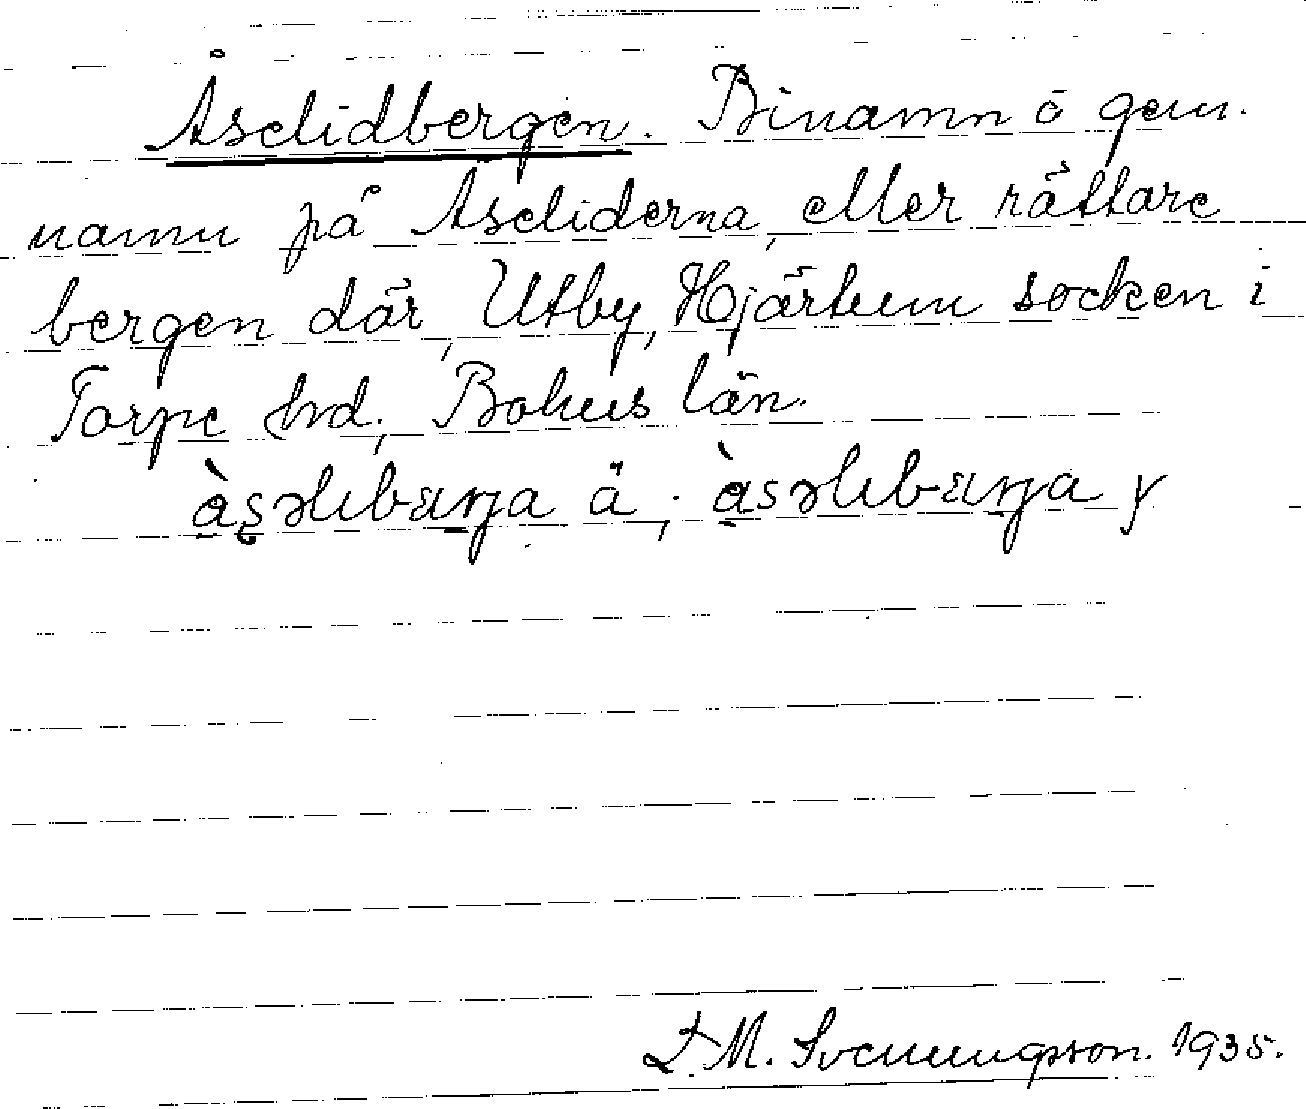 Åselidbergen. Binamn o gem.
namn på Åseliderna, eller rättare
bergen där, Utby, Hjärtum socken i
Torpe hrd, Bohus län.
àsəlıbærja ä; àsəlıbærja y
L. M. Svenungsson. 1935.